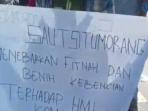 SAUT SITUMORANG
MENEBARKAN FITNAH DAN
BENIH KEBENCIAN
TERHADAP HMI